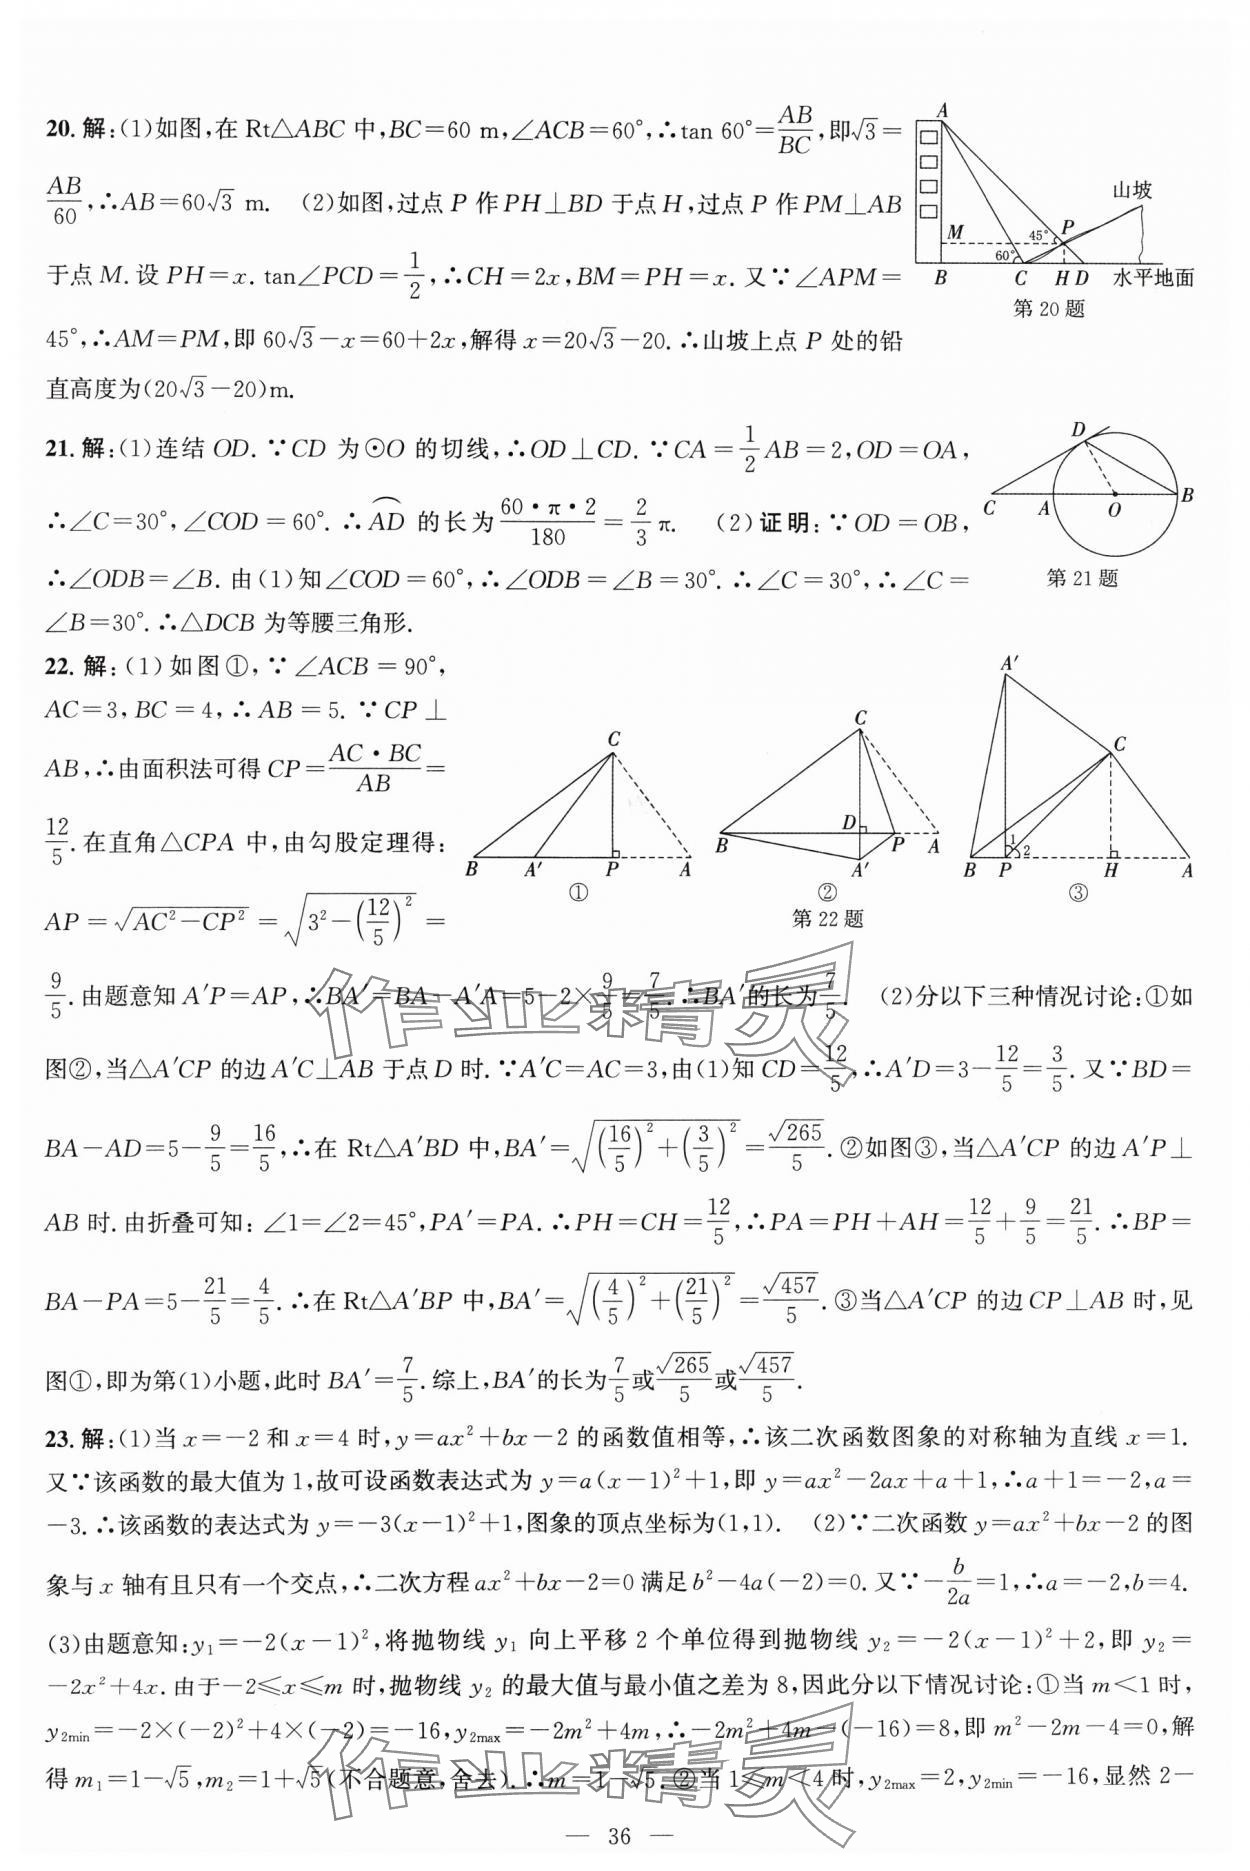 20. 解:(1)如图,在 Rt△ABC 中,BC=60 m,∠ACB=60°,∴tan 60°=AB/BC,即√3=
AB/60,∴AB=60√3 m. (2)如图,过点 P 作 PH⊥BD 于点 H,过点 P 作 PM⊥AB
于点 M. 设 PH=x. tan∠PCD=1/2,∴CH=2x,BM=PH=x. 又∵∠APM=
45°,∴AM=PM,即 60√3-x=60+2x,解得 x=20√3-20. ∴山坡上点 P 处的铅
直高度为(20√3-20)m.
A
山坡
M 45° P
60°
B C H D 水平地面
第 20 题
21. 解:(1)连结 OD. ∵CD 为⊙O 的切线,∴OD⊥CD. ∵CA=1/2 AB=2,OD=OA,
∴∠C=30°,∠COD=60°. ∴⌒AD 的长为 60·π·2/180=2/3 π. (2)证明:∵OD=OB,
∴∠ODB=∠B. 由(1)知∠COD=60°,∴∠ODB=∠B=30°. ∴∠C=30°,∴∠C=
∠B=30°. ∴△DCB 为等腰三角形.
D
C A O B
第 21 题
22. 解:(1)如图①,∵∠ACB=90°,
AC=3,BC=4,∴AB=5. ∵CP⊥
AB,∴由面积法可得 CP=AC·BC/AB=
12/5. 在直角△CPA 中,由勾股定理得:
AP=√(AC²-CP²)=√(3²-(12/5)²)=
C
B A′ P A
①
C
D
B P A
A′
②
A′
C
1 2
B P H A
③
第 22 题
9/5. 由题意知 A′P=AP,∴BA′=BA-A′A=5-2×9/5=7/5. ∴BA′的长为7/5. (2)分以下三种情况讨论:①如
图②,当△A′CP 的边 A′C⊥AB 于点 D 时. ∵A′C=AC=3,由(1)知 CD=12/5,∴A′D=3-12/5=3/5. 又∵BD=
BA-AD=5-9/5=16/5,∴在 Rt△A′BD 中,BA′=√((16/5)²+(3/5)²)=√265/5. ②如图③,当△A′CP 的边 A′P⊥
AB 时. 由折叠可知:∠1=∠2=45°,PA′=PA. ∴PH=CH=12/5,∴PA=PH+AH=12/5+9/5=21/5. ∴BP=
BA-PA=5-21/5=4/5. ∴在 Rt△A′BP 中,BA′=√((4/5)²+(21/5)²)=√457/5. ③当△A′CP 的边 CP⊥AB 时,见
图①,即为第(1)小题,此时 BA′=7/5. 综上,BA′的长为7/5或√265/5或√457/5.
23. 解:(1)当 x=-2 和 x=4 时,y=ax²+bx-2 的函数值相等,∴该二次函数图象的对称轴为直线 x=1.
又∵该函数的最大值为 1,故可设函数表达式为 y=a(x-1)²+1,即 y=ax²-2ax+a+1,∴a+1=-2,a=
-3. ∴该函数的表达式为 y=-3(x-1)²+1,图象的顶点坐标为(1,1). (2)∵二次函数 y=ax²+bx-2 的图
象与 x 轴有且只有一个交点,∴二次方程 ax²+bx-2=0 满足 b²-4a(-2)=0. 又∵-b/2a=1,∴a=-2,b=4.
(3)由题意知:y₁=-2(x-1)²,将抛物线 y₁ 向上平移 2 个单位得到抛物线 y₂=-2(x-1)²+2,即 y₂=
-2x²+4x. 由于-2≤x≤m 时,抛物线 y₂ 的最大值与最小值之差为 8,因此分以下情况讨论:①当 m<1 时,
y₂min=-2×(-2)²+4×(-2)=-16,y₂max=-2m²+4m,∴-2m²+4m-(-16)=8,即 m²-2m-4=0,解
得 m₁=1-√5,m₂=1+√5(不合题意,舍去). ∴m=1-√5. ②当 1≤m<4 时,y₂max=2,y₂min=-16,显然 2-
作业精灵
作业精灵
— 36 —